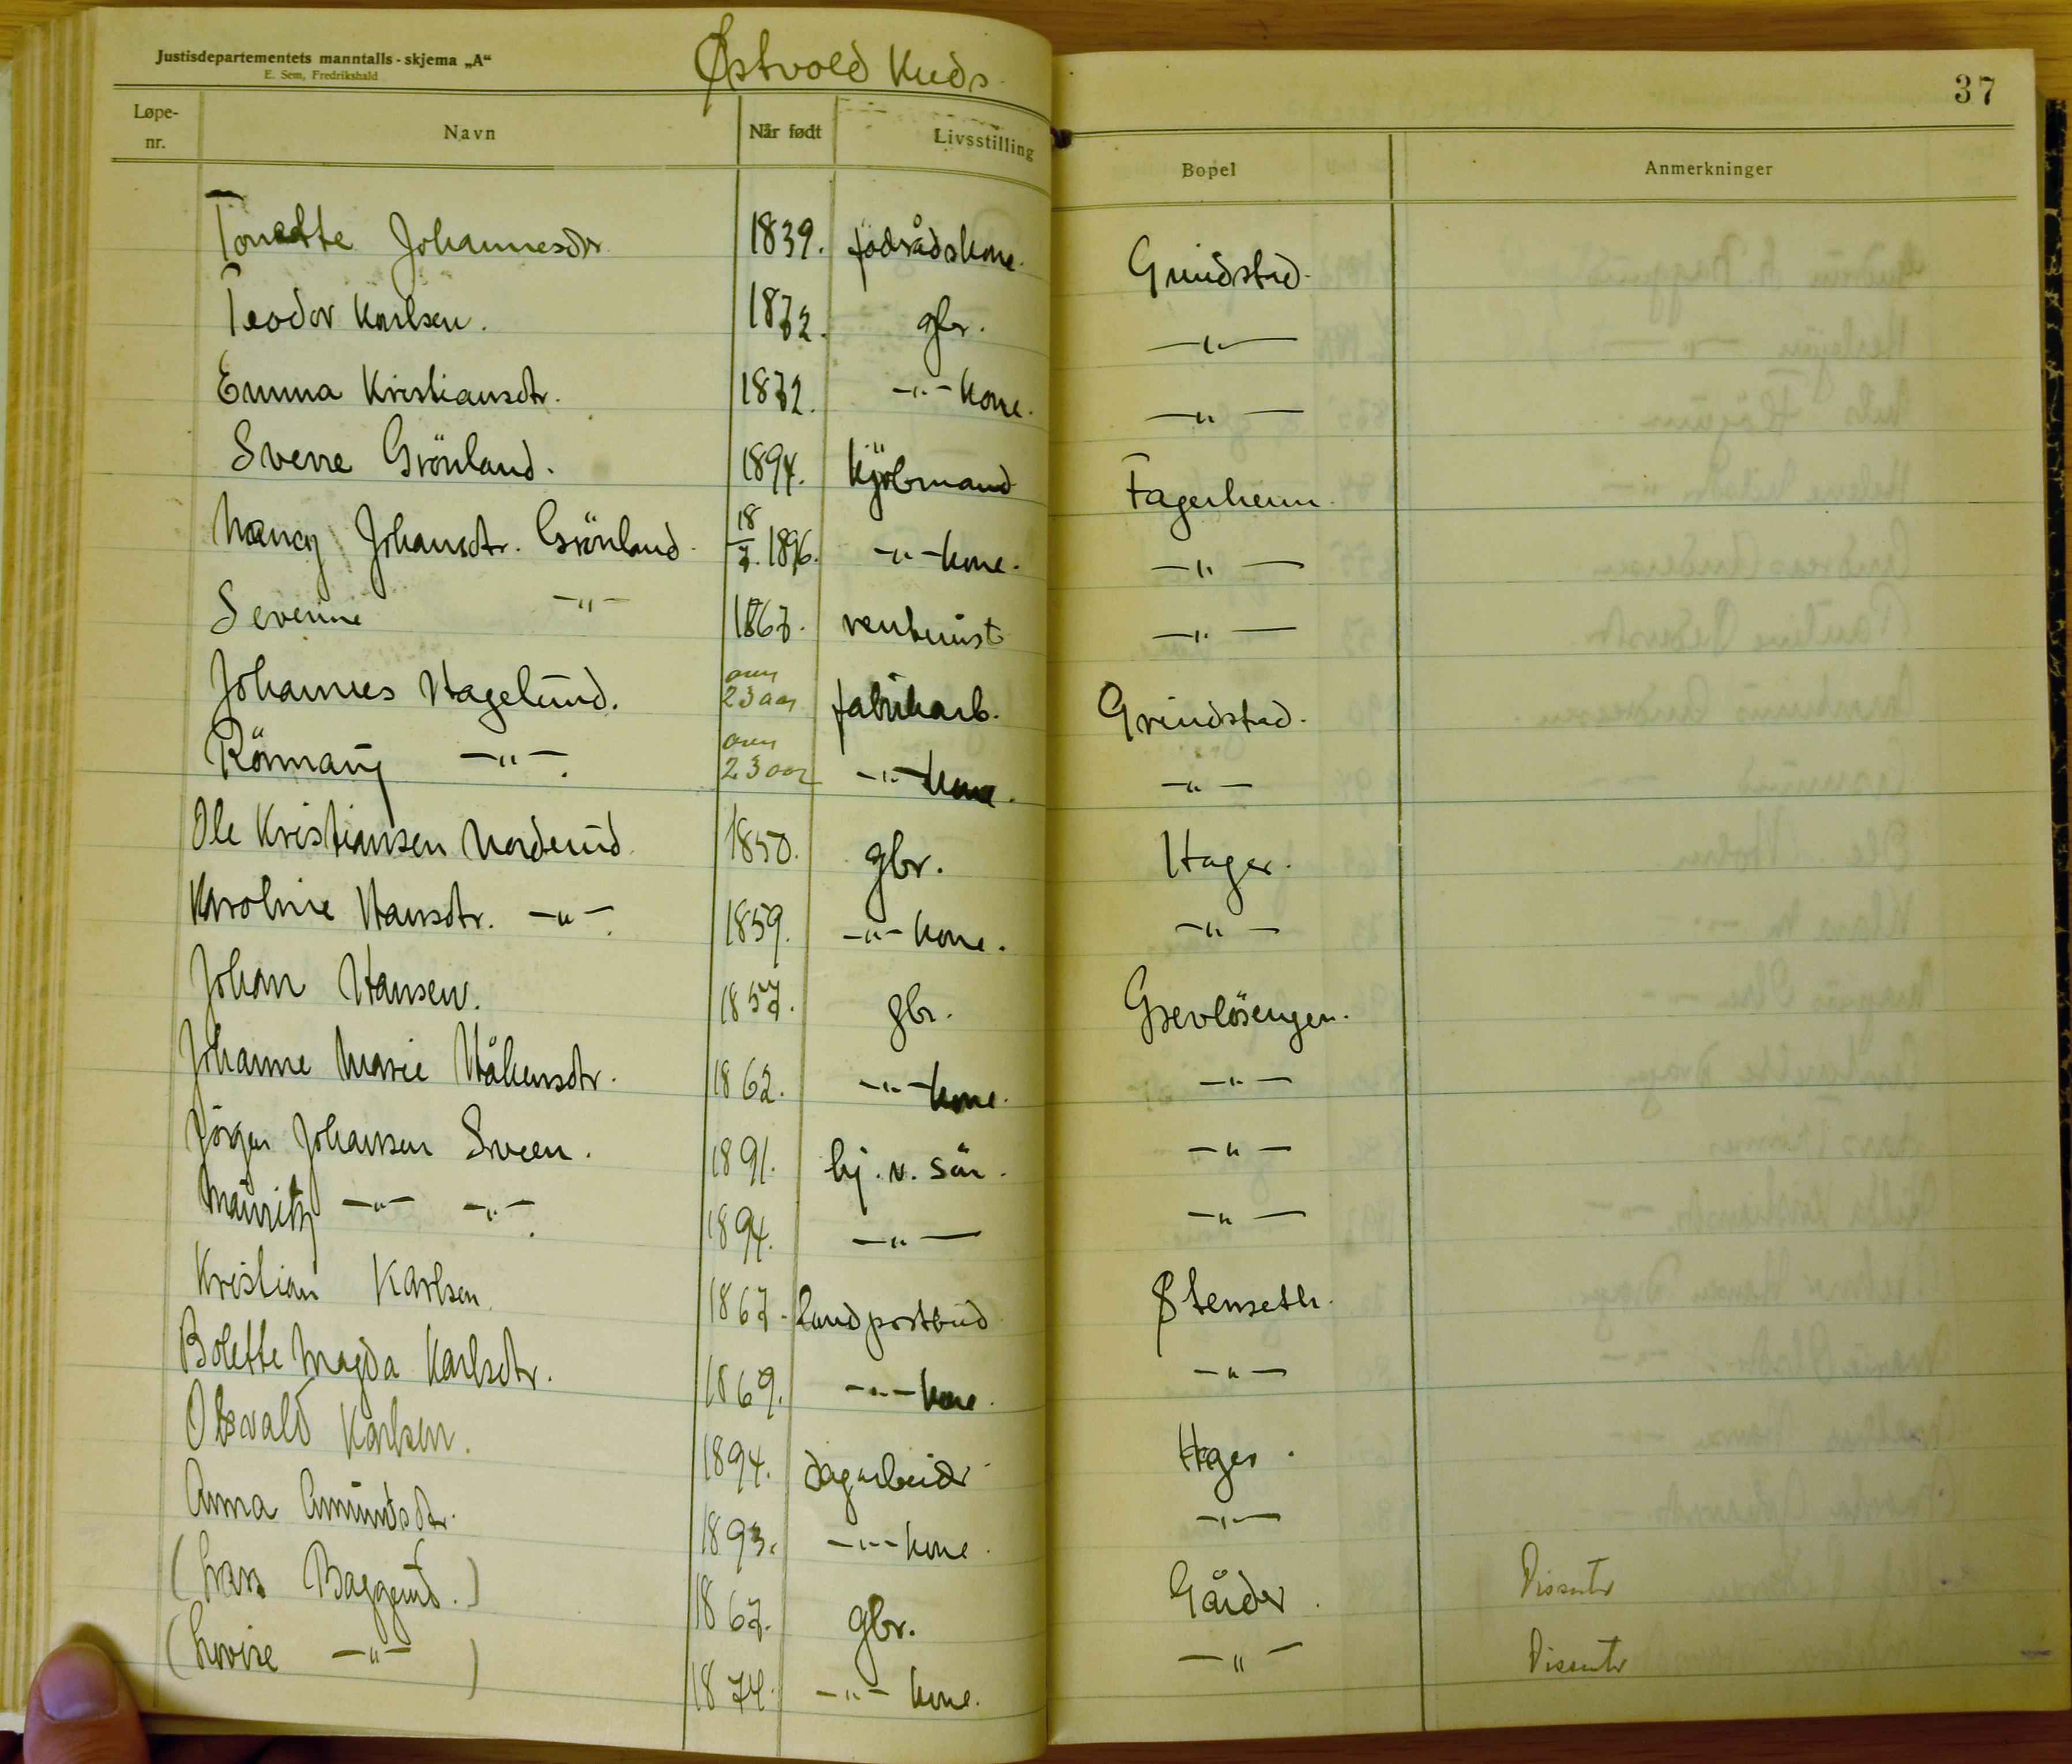 Justisdepartementets manntalls-skjema „A“
E. Sem, Fredrikshald
Østvold Kreds
37
Løpe-nr. Navn Når født Livsstilling Bopel Anmerkninger
Tonette Johannesdtr. 1839. födrådskone. Grindstad.
Teodor Karlsen. 1872. gbr. —"—
Emma Kristiansdtr. 1872. —"— kone. —"—
Sverre Grönland. 1894. Kjöbmand Fagerheim.
Nancy Johansdtr. Grönland 18/7. 1896. —"— kone. —"—
Severine —"— 1867. rentenist —"—
Johannes Hagelund. over 23 aar fabrikarb. Grindstad.
Rönnaug —"—. over 23 aar —"— kone. —"—
Ole Kristiansen Norderud 1850. gbr. Hager.
Karoline Hansdtr. —"—. 1859. —"— kone. —"—
Johan Hansen. 1857. gbr. Grevlösengen.
Johanne Marie Håkensdtr. 1862. —"— kone. —"—
Jörgen Johansen Sveen. 1891. hj. v. sön. —"—
Mauritz —"— —"—. 1894. —"— —"—
Kristian Karlsen. 1867. Landpostbud Stenseth.
Bolette Magda Karlsdtr. 1869. —"— kone. —"—
Osvald Karlsen. 1894. Dagarbeider Hager.
Anna Amundsdtr. 1893. —"— kone. —"—
(Lars Baggerud.) 1867. gbr. Gårder. Dissenter
(Lovise —"—) 1874. —"— kone. —"— Dissenter